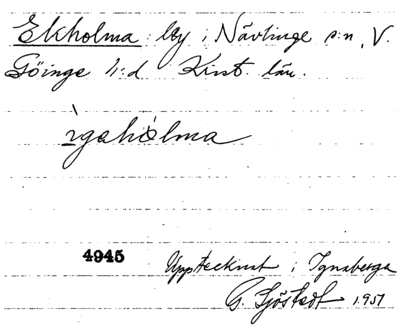 Ekholma by i Nävlinge s:n, V.
Göinge h:d Krist. län.
ìgahòlma
4945
Upptecknat i Ignaberga
G. Sjöstedt 1951